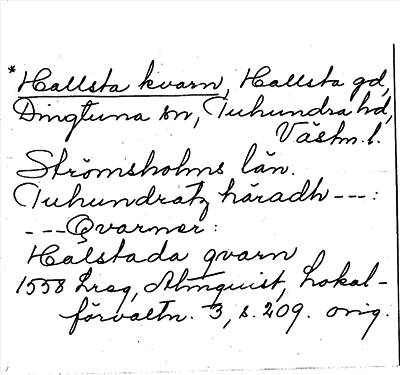 *Hallsta kvarn, Hallsta gd,
Dingtuna sn, Tuhundra hd,
Västm. l.
Strömsholms län.
Tuhundratz häradh ---:
--- Qvarner:
Hålstada qvarn
1558 Lreg, Almquist, Lokal-
förvaltn. 3, s. 209. orig.